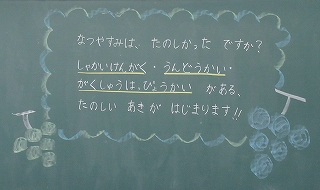 なつやすみは、たのしかった ですか?
しゃかいけんがく・うんどうかい・
がくしゅうはっぴょうかい がある、
たのしい あきが はじまります!!